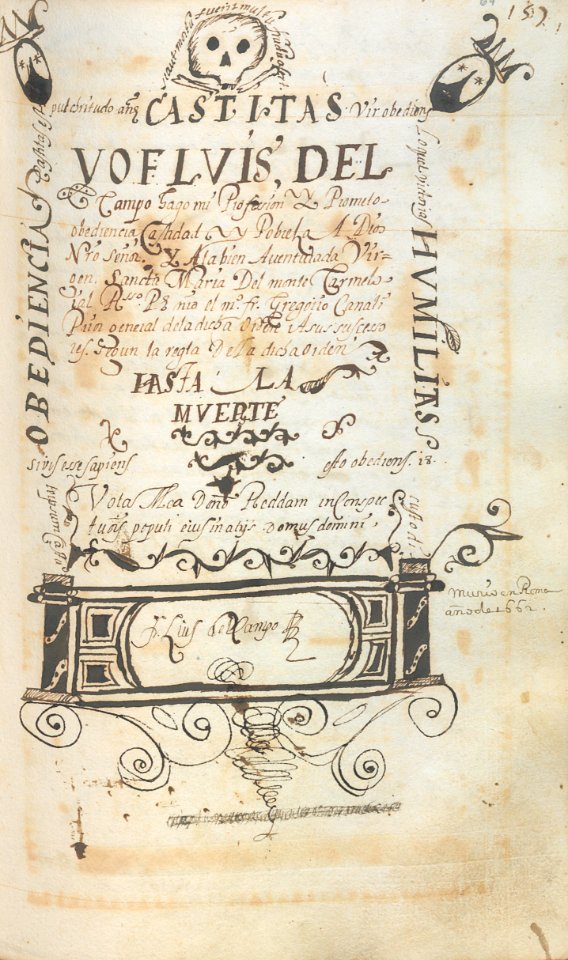 157
CASTITAS
pulchritudo
Vir obediens
YO F LVIS, DEL
Campo hago mi Profesion Y Prometo
obediencia Castidad Y Pobreza A Dios
Nro señor. Y Ala bien Aventurada Vir=
gen. Sancta Maria Del monte Carmelo
ial R.mo P.e nro el m.o fr. Gregorio Canali
Prior general dela dicha Orden i Asus succeso
res segun la regla De la dicha Orden
HASTA LA
MVERTE
OBEDIENCIA
HVMILITAS
Loquetur victorias
si vis esse sapiens
esto obediens. 18.
Vota Mea Domino Reddam in Conspec
tu omnis populi eius in atrijs Domus domini,
fr. Luis del Campo
Murio en Roma
año de 1662.